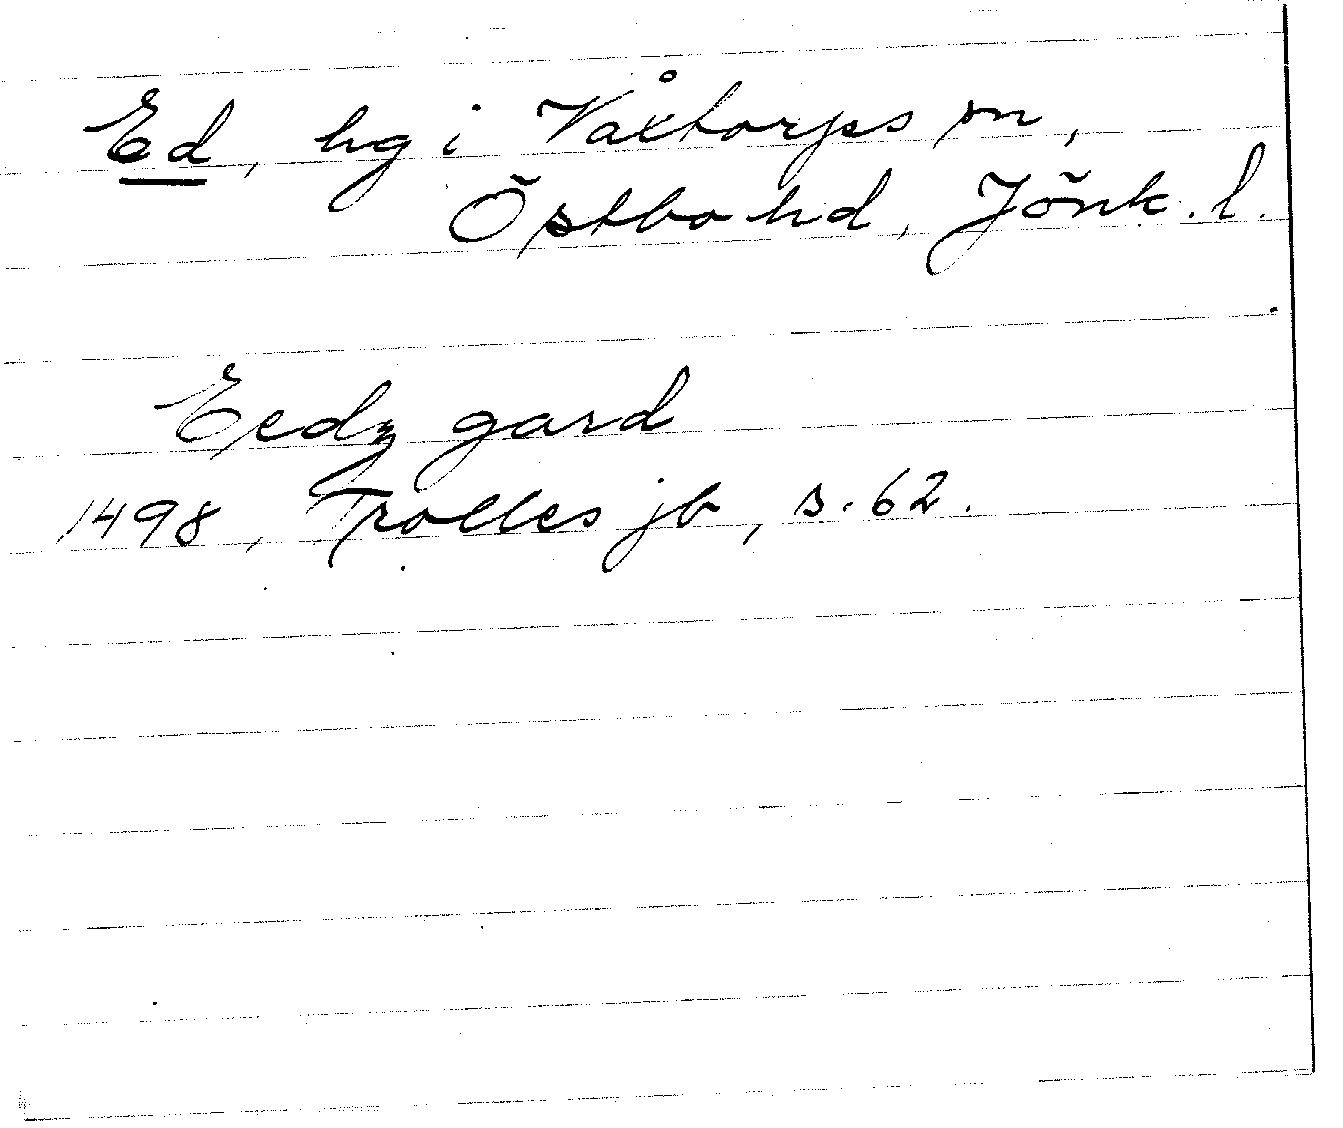 Ed, hg i Våxtorps sn,
Östbo hd, Jönk. l.
Eedz gard
1498, Trolles jb, s. 62.